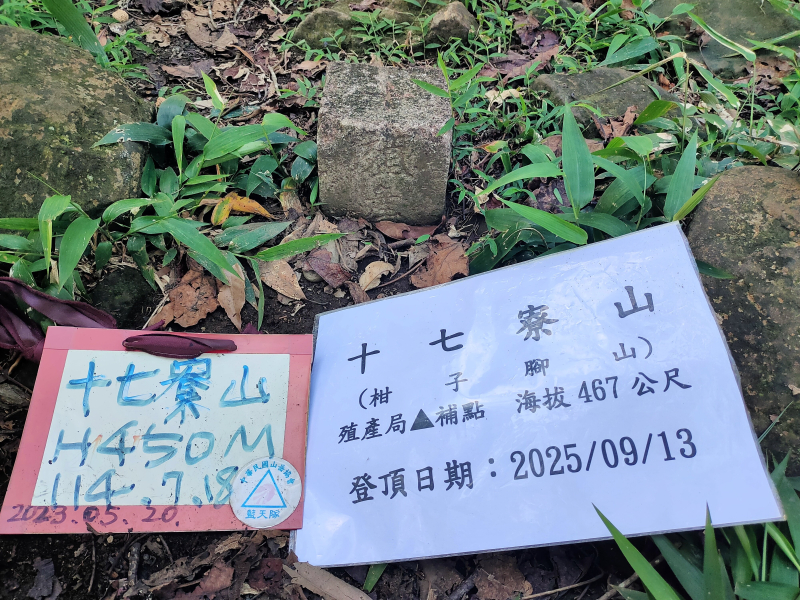 十七寮山
H450M
114.7.18
2023.05.20.
中華民國山岳協會
藍天隊
十七寮山
(柑子腳山)
殖產局▲補點 海拔467公尺
登頂日期：2025/09/13